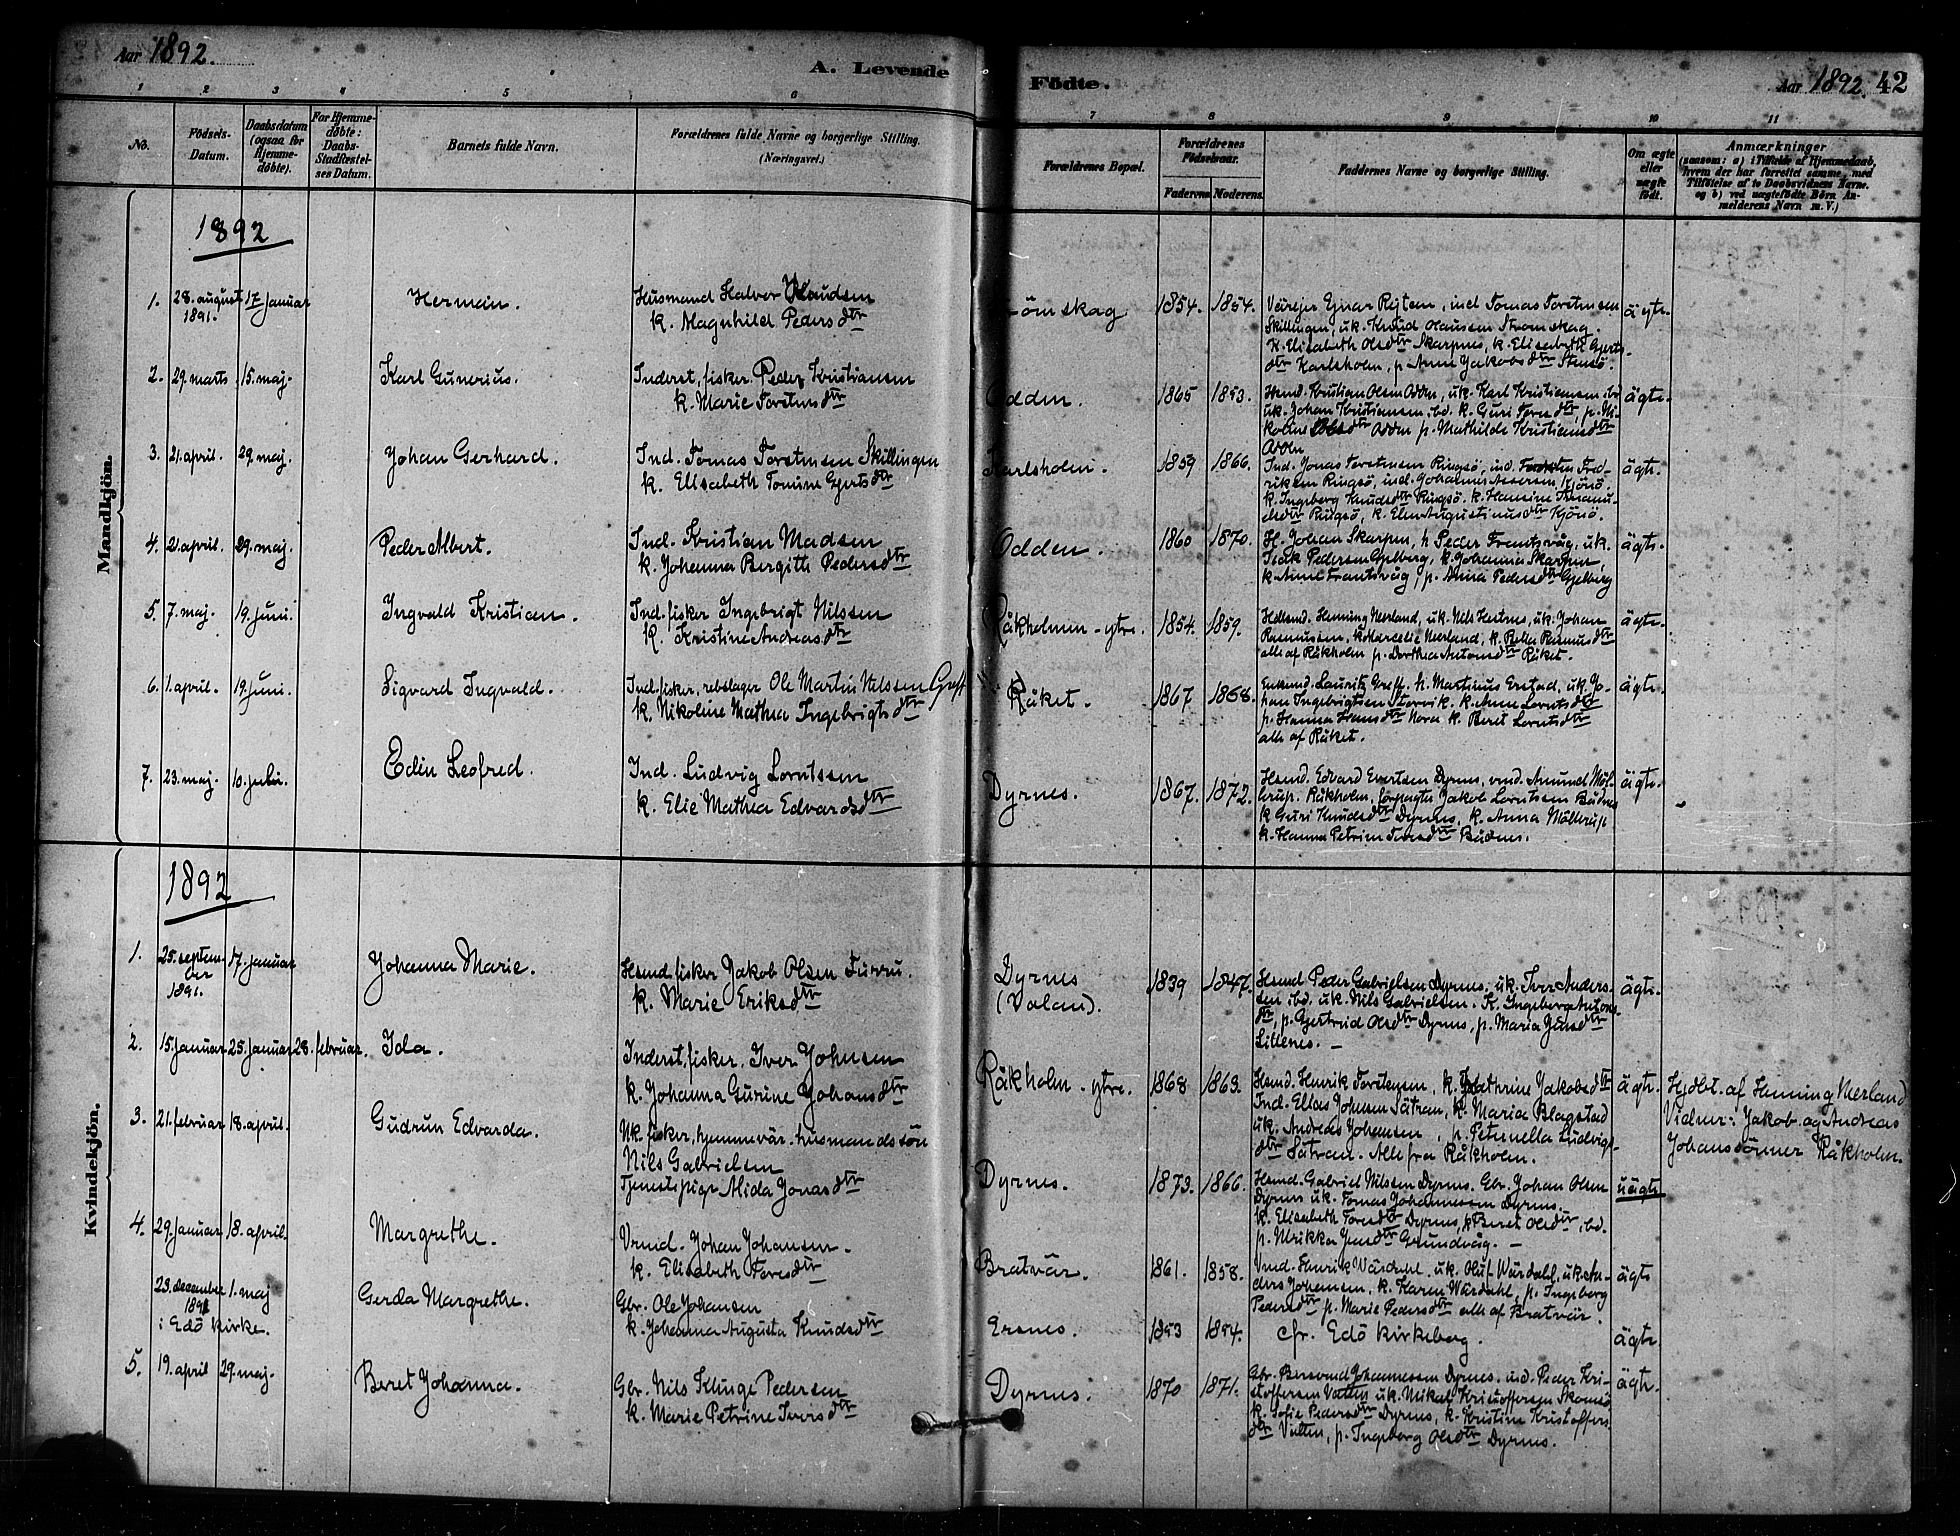 Aar 1892.
A. Levende
Födte.
Aar 1892. 42
1 2 3 4 5 6 7 8 9 10 11
No.
Födsels-Datum.
Daabsdatum (ogsaa for Hjemmedöbte).
For Hjemmedöbte: Daabs-Stadfæstelses Datum.
Barnets fulde Navn.
Forældrenes fulde Navne og borgerlige Stilling. (Næringsvei.)
Forældrenes Bopæl.
Forældrenes Födselsaar.
Faderens. Moderens.
Faddernes Navne og borgerlige Stilling.
Om ægte eller uægte födt.
Anmærkninger
(saasom: a) i Tilfælde af Hjemmedaab,
hvem der har forrettet samme, med
Tilföielse af to Daabsvidners Navne.
og b) ved uægtefödte Börn An-
melderens Navn m. V.)
Mandkjön.
1892
1. 28. august 1891. 17 januar Herman. Husmand Halvor Knudsen
k. Magnhild Pedersdtr
ömskag 1854. 1854. ägte.
Skillingen, uk. Knud Olaussen Strömskag.
k. Elisabeth Olsdtr Skarpnes, k. Elisabeth Gjerts-
dtr Karlsholm, p Anne Jakobsdtr Stensö.
2. 29. marts. 15. maj. Karl Gunerius. Inderst, fisker Peder Kristiansen
k. Marie Torstensdtr
Odden. 1865 1853. Hsmd. Kristian Olsen Odden, uk. Karl Kristiansen ibd ägte.
uk. Johan Kristiansen ibd. k. Guri Toresdtr, p. Ni-
koline Olsdtr Odden p. Mathilde Kristiansdtr
Odden
3. 21. april. 29. maj. Johan Gerhard. Ind. Tomas Torstensen Skillingen
k. Elisabeth Tomine Gjertsdtr
Karlsholm. 1859 1866. Ind. Jonas Torstensen Ringsö, ind. Fred- ägte.
riksen Ringsö, ind. Johannes Assersen Kjönö.
k. Ingeborg Knudsdtr Ringsö. k. Hansine Amanu-
elsdtr Ringsö, k. Elen Augustinusdtr Kjönö.
4. 21. april. 29. maj. Peder Albert. Ind. Kristian Madsen
k. Johanna Bergitte Pedersdtr
Odden. 1860 1870. H. Johan Skarpnes, h Peder Frentsvåg, uk. ägte.
Isak Pedersen Gjelberg, k. Johanna Skarpnes,
k. Anne Frantsvåg, p. Anna Pedersdtr Gjelberg
5. 7. maj. 19. juni. Ingvald Kristian. Ind. fisker Ingebrigt Nilssen
k. Kristine Andreasdtr
Råkholmen-ytre. 1854. 1859. Henning Merland, uk. Nils Heitnes, uk. Johan ägte.
Rasmussen, k. Marselie Merland, k. Rasmusdtr
alle af Råkholm p. Dorthea Antonsdtr Råket.
6. 1. april. 19. juni. Sigvard Ingvald. Ind. fisker, rebslager Ole Martin Nilssen Greff
k. Nikoline Mathea Ingebrigtsdtr
Råket. 1867 1868. Lauritz Greff. h. Martinus Erstad, uk. Jo- ägte.
han Ingebrigtsen Storvik. k. Anne Lorntsdtr
p. Hanna Hansdtr Nora k. Beret Lorntsdtr
alle af Råket.
7. 23. maj. 10. juli. Edin Leofred. Ind. Ludvig Lorntssen
k. Elie Mathea Edvardsdtr
Dyrnes. 1867. 1872. Hsmd. Edvard Evertsen Dyrnes, vmd. Amund Möl- ägte.
lerup. Råkholm, forpagter Jakob Lorntsen Bådnes
k Guri Knudsdtr Dyrnes, k. Anna Möllerup
k. Hanna Petrine Iversdtr Bådnes.
Kvindekjön.
1892
1. 25. septem-ber 1891. 17. januar Johanna Marie. Hsmd. fisker Jakob Olsen Furru.
k. Marie Eriksdtr
Dyrnes (Valan). 1839 1847. Hsmd Peder Gabrielsen Dyrnes. uk. Iver Anders- ägte.
sen ibd. uk. Nils Gabrielsen. k. Ingeborg Antons-
dtr, p. Gjertrud Olsdtr Dyrnes, p. Maria Jensdtr
Lillenes. -
2. 15. januar 25. januar 28. februar. Ida. Inderst, fisker. Iver Johnsen
k. Johanna Gurine Johansdtr
Råkholm-ytre. 1868 1863. Hsmd. Henrik Torstensen, k. Kathrine Jakobsdtr ägte.
Ind. Ellas Johnsen Sätran, k. Maria Blagstad
uk. Andreas Johansen, p. Peternella Ludvigs-
dtr Sätran. Alle fra Råkholm.
Hjdbt. af Henning Merland
Vidner: Jakob og Andreas
Johanssönner Råkholm.
3. 21. februar 18. april. Gudrun Edvarda. Uk. fisker, hjemmevär. husmandssön
Nils Gabrielsen
Tjenestepige Alida Jonasdtr
Dyrnes. 1873. 1866. Hsmd. Gabriel Nilssen Dyrnes. Gbr. Johan Olsen uägte
Dyrnes uk. Tomas Johannessen Dyrnes.
k. Elisabeth Toresdtr Dyrnes, p Beret Olsdtr ibd.
p. Ulrikka Jensdtr Grundvåg. -
4. 29. januar 18. april. Margrethe. Vmd. Johan Johansen.
k. Elisabeth Toresdtr
Bratvär. 1861. 1858. Vmd. Henrik Värdahl. uk. Oluf Värdahl, uk. An- ägte
ders Johansen, k. Karen Värdahl, p. Ingeborg
Pedersdtr p. Marie Pedersdtr alle af Bratvär.
23. december 1891 1. maj i Edö kirke. Gerda Margrethe. Gbr. Ole Johansen
k. Johanna Augusta Knudsdtr
Ersnes. 1853 1854. cfr. Edö kirkebog. ägte
5. 19. april 29. maj. Beret Johanna. Gbr. Nils Klinge Pedersen
k. Marie Petrine Iversdtr
Dyrnes. 1870 1871. Gbr. Johannessen Dyrnes. ind. Peder Kri- ägte.
stoffersen Vullen uk. Mikal Kristoffersen
k. Sofie Pedersdtr Dyrnes, k. Kristine Kristoffers
dtr Vullen, p. Ingeborg Olsdtr Dyrnes.